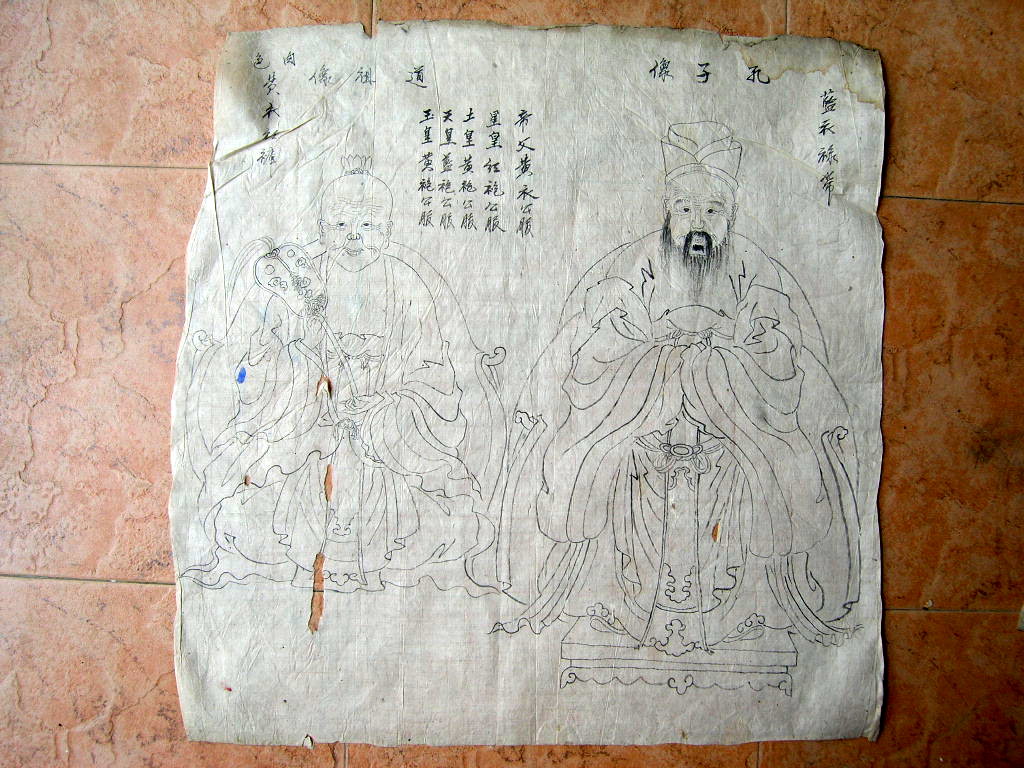 孔子像
藍衣禄帶
帝父黄衣公服
星皇红袍公服
土皇黄袍公服
天皇藍袍公服
玉皇黄袍公服
道祖像
肉色
黄衣